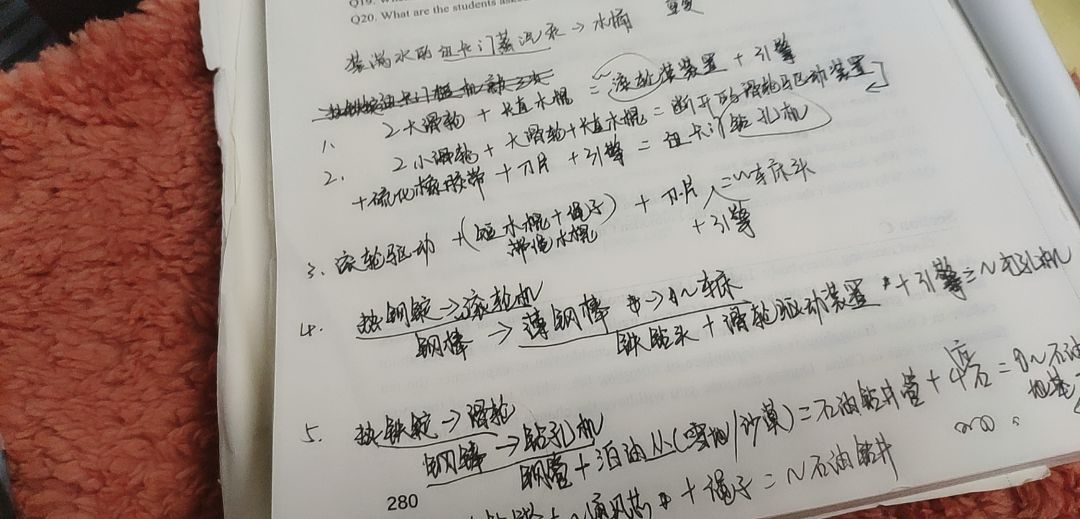 Q20. What are the students
装满水的纽卡门蒸汽泵 → 水桶
1. 2大滑轮 + 长直木棍 = 滚轮装置 + 引擎
2. 2小滑轮 + 大滑轮 + 长直木棍 = 断开的滑轮驱动装置
+ 硫化橡胶带 + 刀片 + 引擎 = 纽卡门钻孔机
3. 滚轮驱动 + (短木棍 + 绳子) + 刀片 = ~车床头
带绳木棍 + 引擎
4. 热钢锭 → 滚轮机
钢棒 → 薄钢棒 → ~车床
铁钻头 + 滑轮驱动装置 + 引擎 = ~钻孔机
5. 热铁锭 → 滑轮
钢棒 → 钻孔机
钢管 + 泊油 (雪地/沙漠) = 石油钻井管 + 岩石 = ~石油
地基
280
+ 绳子 = ~石油钻井